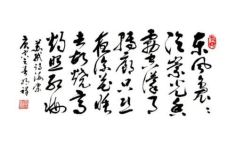 东风袅袅
泛崇光香
雾空濛月
转廊只恐
夜深花睡
去故烧高
烛照红妆
苏轼诗海棠